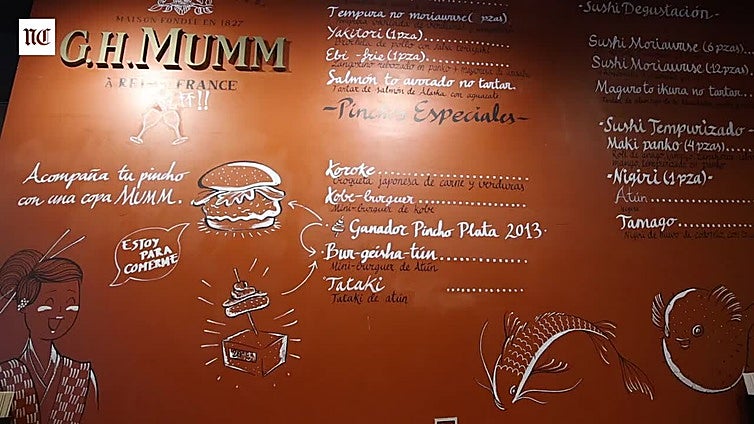 NC
MAISON FONDÉE EN 1827
G.H. MUMM
À REIMS, FRANCE
Acompaña tu pincho
con una copa MUMM.
ESTOY
PARA
COMERME
2013
Tempura no moriawase ( pzas)
Yakitori (1 pza)
Brocheta de pollo con salsa teriyaki
Ebi - frie (1 pza)
Langostino rebozado en panko
Salmón to avocado no tartar.
Tartar de salmón de Alaska con aguacate
-Pinchos Especiales-
Koroke
Croqueta japonesa de carne y verduras
Kobe-burguer
Mini-burguer de Kobe
Ganador Pincho Plata 2013.
Bur-geisha-tún
Mini-burguer de Atún
Tataki
Tataki de atún
-Sushi Degustación-
Sushi Moriawase (6 pzas)
Sushi Moriawase (12 pzas)
Maguro to ikura no tartar
-Sushi Tempurizado-
Maki panko (4 pzas)
-Nigiri (1 pza)-
Atún
Tamago